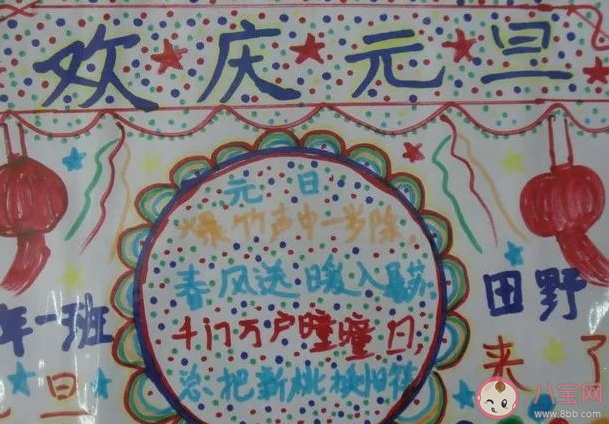 欢庆元旦
元日
爆竹声中一岁除,
春风送暖入屠苏
千门万户瞳瞳日,
总把新桃换旧符
年一班
旦
田野
来了
八宝网
www.8bb.com